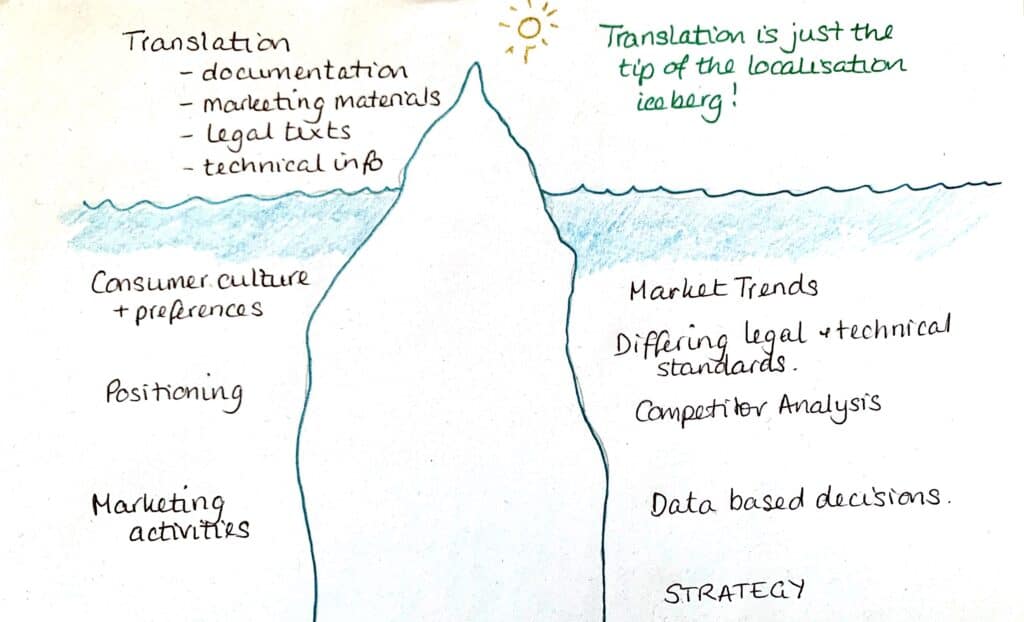 Translation
- documentation
- marketing materials
- legal texts
- technical info
Translation is just the
tip of the localisation
iceberg!
Consumer culture
+ preferences
Positioning
Marketing
activities
Market Trends
Differing legal + technical
standards.
Competitor Analysis
Data based decisions.
STRATEGY